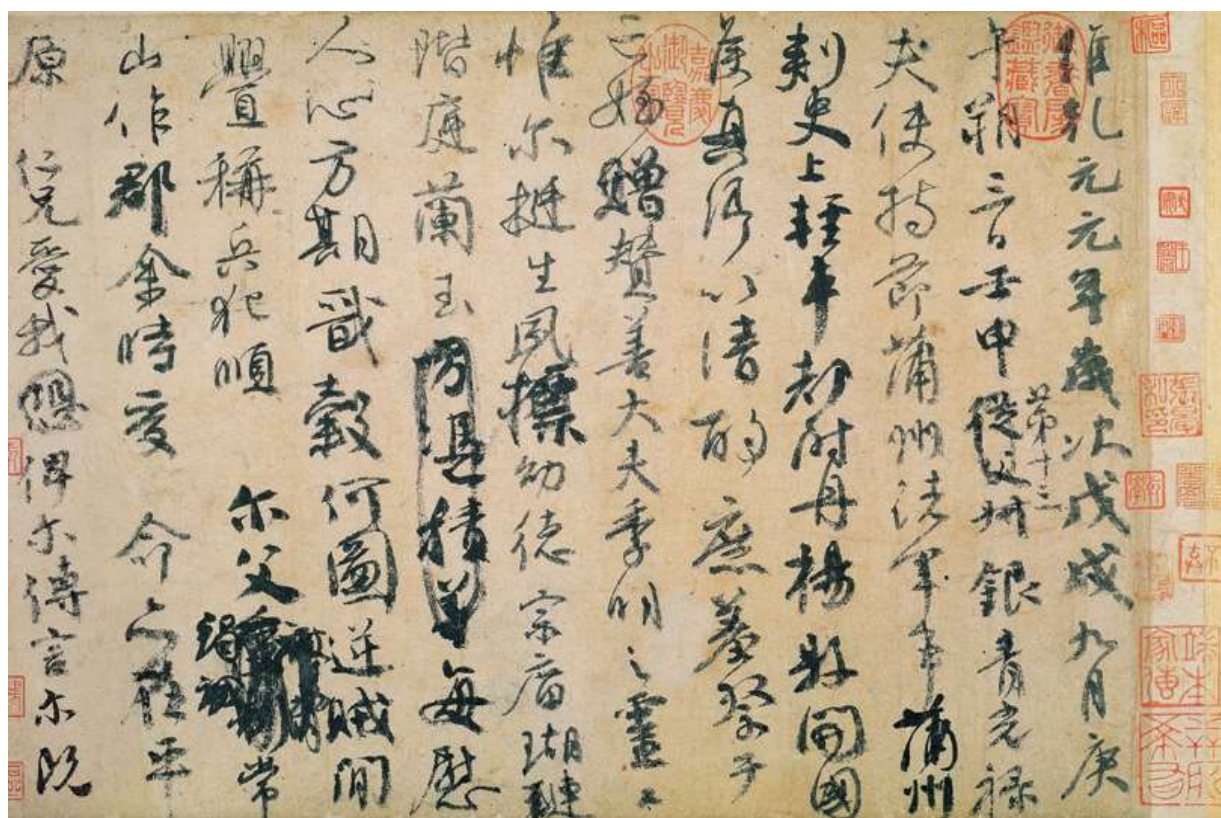 維乾元元年歲次戊戌九月庚
午朔三日壬申第十三從父銀青光祿
夫使持節蒲州諸軍事蒲州
刺史上輕車都尉丹楊縣開國
侯真卿以清酌庶羞祭于
亡姪贈贊善大夫季明之靈曰
惟尔挺生夙標幼德宗廟瑚璉
階庭蘭玉方憑積善每慰
人心方期戩穀何圖逆賊間
釁稱兵犯順 尔父竭誠常
山作郡余時受 命亦在平
原 仁兄愛我俾尔傳言尔既
御書房鑑藏寶
嘉慶御覽之寶